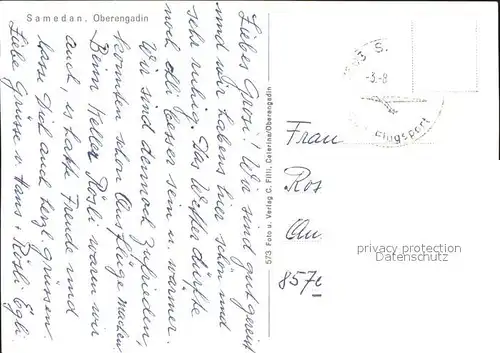 Samedan. Oberengadin
Liebes Grosi! Wir sind gut gereist
und wir haben hier schön und
sehr ruhig. Das Wetter dürfte
noch besser sein u. wärmer.
Wir sind dennoch zufrieden,
konnten schon Ausflüge machen.
Beim Keller Rösli waren wir
auch, es hatte Freude und
lasse Dich auch herzl. grüssen
Liebe Grüsse v. Hans + Rösli Egli
573 Foto u. Verlag C. Filli, Celerina/Oberengadin
-3.-8
Flugsport
Frau
Ros
857
privacy protection
Datenschutz